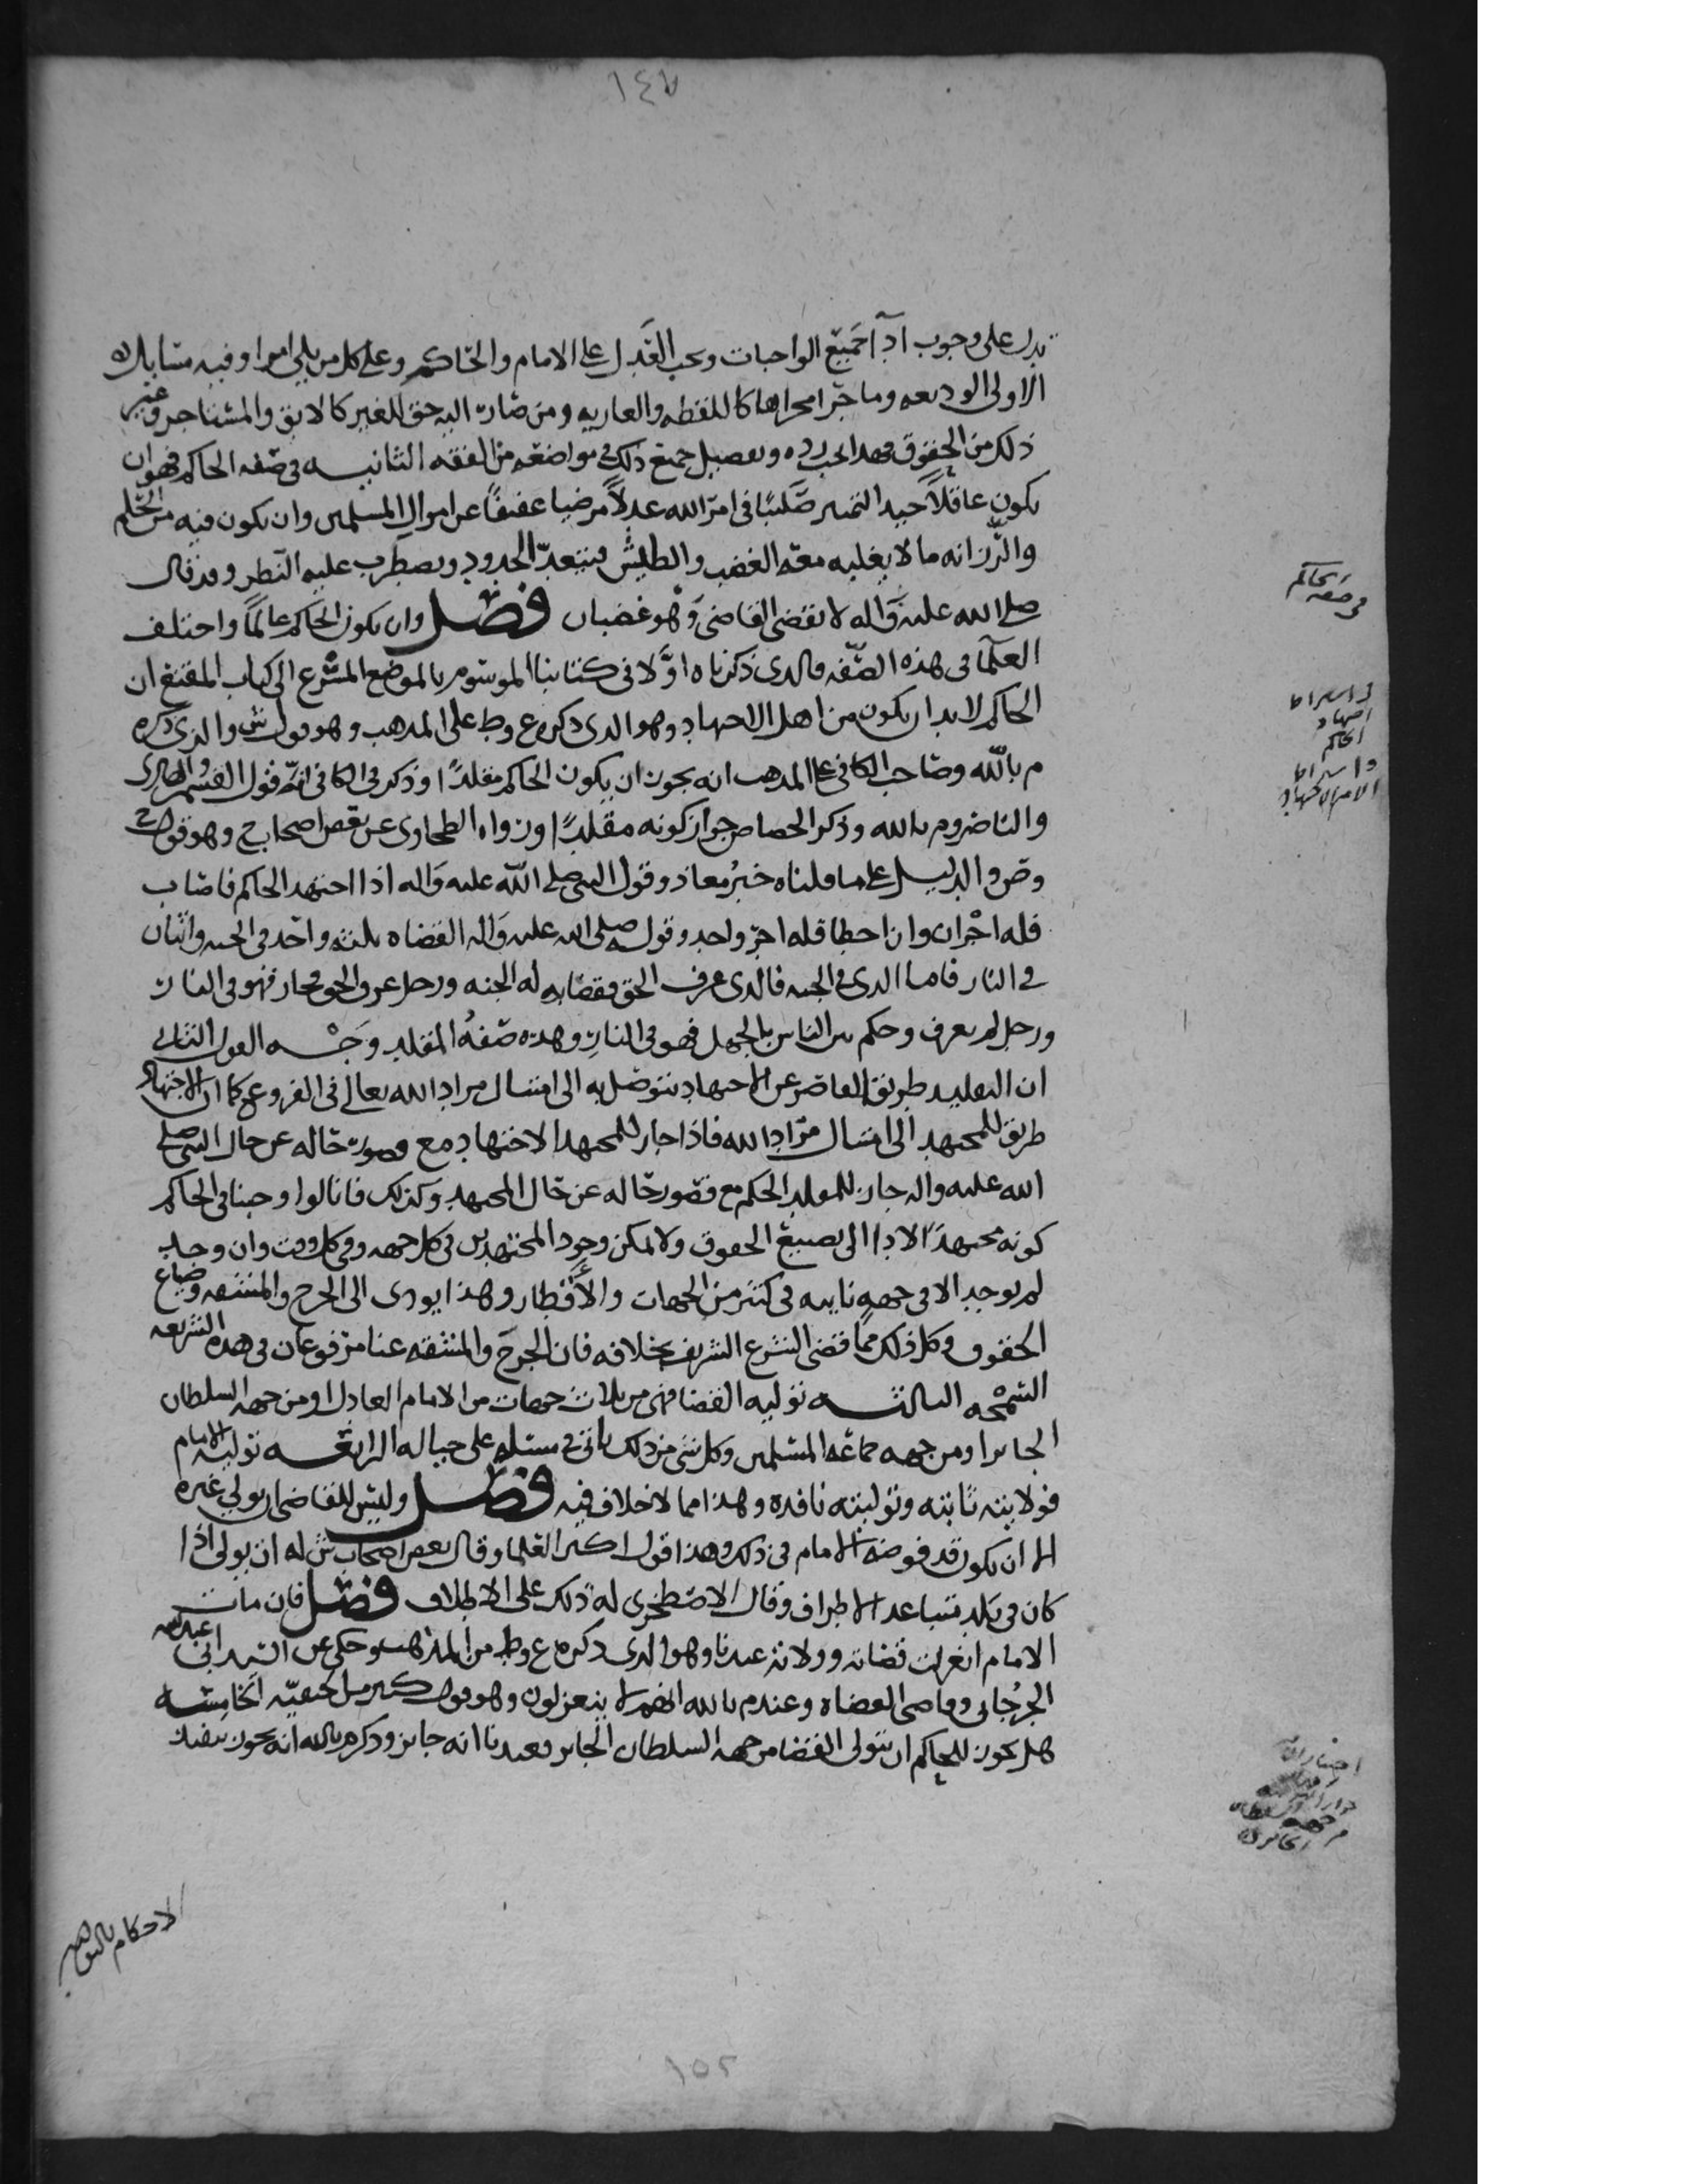 ١٤٧
يدل على وجوب ادآ جميع الواجبات ويجب العدل على الامام والحاكم وعلى كل من يلي امرا وفيه مسايل
الاولى الوديعه وما جرا مجراها كاللقطه والعاريه ومن صارت اليه حق للغير كالابق والمستاجر وغير
ذلك من الحقوق فهذا يجب رده وتفصيل جميع ذلك في مواضعه من الفقه الثانيه في صفه الحاكم فهو ان
يكون عاقلاً جيد التميز صليبًا في امر الله عدلاً مرضيا عفيفًا عن اموال المسلمين وان يكون فيه من الحلم
والرزانه ما لا يغلبه معه الغضب والطيش فيتعدّ الحدود ويضطرب عليه النظر وقد قال
صلى الله عليه وَاله لا يقضي القاضي وَهو غضبان فصل وان يكون الحاكم عالماً واختلف
العلما في هذه الصّفه فالذي ذكرناه اوَّلا في كتابنا الموسوم بالموضع المشرع الى كتاب المقنع ان
الحاكم لا بد ان يكون من اهل الاجتهاد وهو الذي ذكره ع وط على المذهب وهو قول ش والذي ذكره
م بالله وصاحب الكافي على المذهب انه يجوز ان يكون الحاكم مقلدًا وذكر في الكافي انّه قول القسم والهادي
والناصر وم بالله وذكر الجصاص جواز كونه مقلدًا ورواه الطحاوي عن بعض اصحاب ح وهو قول ح
وص والدليل على ما قلناه خبر معاذ وقول النبي صلى اللّه عليه وَاله اذا اجتهد الحاكم فاصاب
فله اجْران وان اخطا فله اجر واحد وقوله صلى الله عليه وَاله القضاه ثلثه واحد في الجنه واثنان
في النار فاما الذي في الجنه فالذي عرف الحق فقضا به له الجنه ورجل عرف الحق فجار فهو في النار
ورجل لم يعرف وحكم بين الناس بالجهل فهو في النار وهذه صفهُ المقلد وَجْه القول الثاني
ان التقليد طريق القاصر عن الاجتهاد يتوصل به الى امتثال مراد الله تعالى في الفروع كما ان الاجتهاد
طريق للمجتهد الى امتثال مرّاد الله فاذا جاز للمجتهد الاجتهاد مع قصور حاله عن حال النبي صلى
الله عليه واله جاز للمقلد الحكم مع قصور حاله عن حال المجتهد وكذلك فانا لو اوجبنا في الحاكم
كونه مجتهدًا لادا الى تضييع الحقوق ولا يمكن وجود المجتهدين في كل جهه وفي كل وقت وان وجد
لم يوجد الا في جهه نايه في كثير من الجهات والأقطار وهذا يودي الى الحرج والمشقه وضياع
الحقوق وكل ذلك مما قضى الشرع الشريف بخلافه فان الحرج والمشقه عنا مرفوعان في هذه الشريعه
السّمْحه الثالثه توليه القضا فهي من ثلاث جهات من الامام العادل او من جهه السلطان
الجاير او من جهه جماعه المسلمين وكل شي من ذلك ياتي في مسئله على حياله الرابعه توليه الامام
فولايته ثابته وتوليته نافذه وهذا مما لا خلاف فيه فصل وليس للقاضي ان يولي غيره
الا ان يكون قد فوضه الامام في ذلك وهذا قول اكثر العلما وقال بعض اصحاب ش له ان يولي اذا
كان في بلد متباعد الاطراف وقال الاصطخري له ذلك على الاطلاق فصل فان مات
الامام انعزلت قضاته وولاته عندنا وهو الذي ذكره ع وط من المذهب وحكى عن السيد ابي عبد الله
الجرُجاني وقاضي القضاه وعند م بالله انهم لا ينعزلون وهو قول كثير من الحنفيّه الخامسه
هل يجوز للحاكم ان يتولى القضا من جهه السلطان الجاير فعندنا انه جايز وذكر م بالله انه يجوز تنفيذ
الاحكام
في صفة الحاكم
في اشتراط
اجتهاد
الحاكم
١٥٢